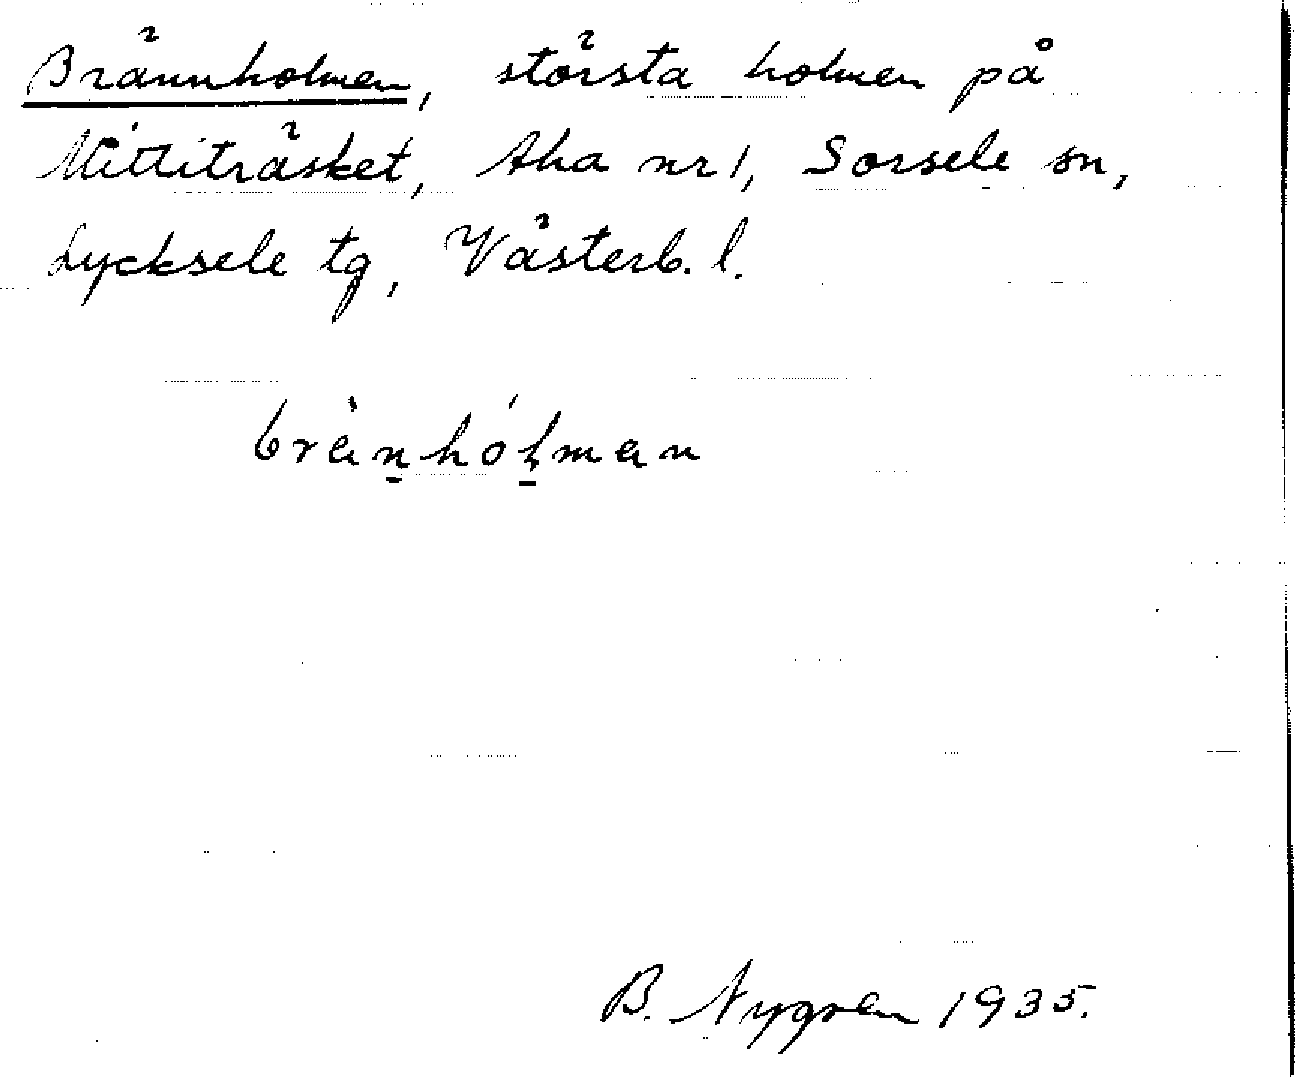 Brännholmen, största holmen på
Mittiträsket, Aha nr 1, Sorsele sn,
Lycksele tg, Västerb. l.
B. Nygren 1935.